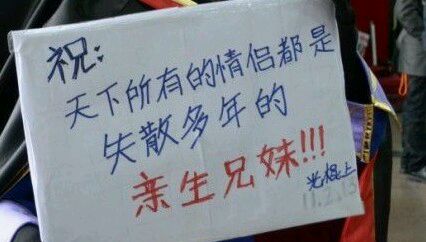 祝:
天下所有的情侣都是
失散多年的
亲生兄妹!!!
光棍上
11.2.13